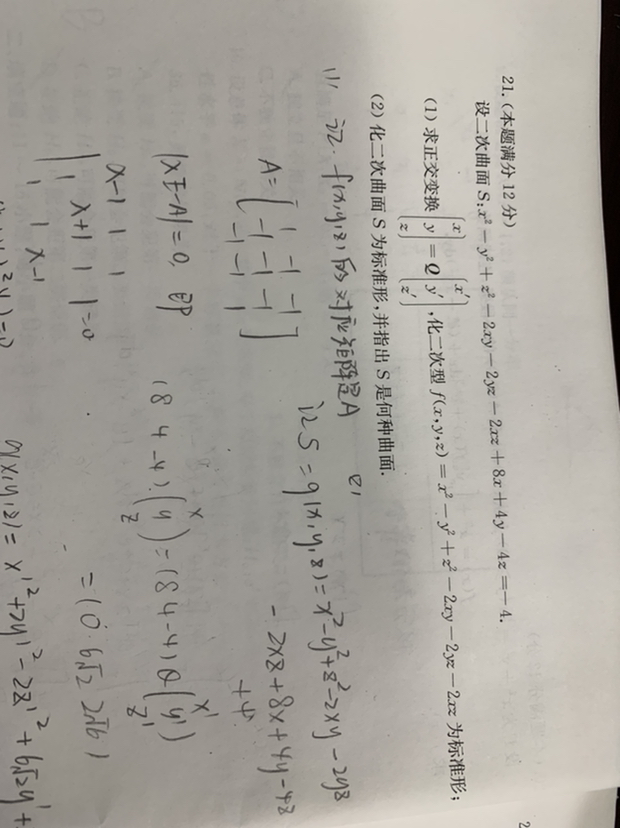 21.(本题满分 12 分)
设二次曲面 S:x²-y²+z²-2xy-2yz-2xz+8x+4y-4z=-4.
(1) 求正交变换 [x y z] = Q [x′ y′ z′] ,化二次型 f(x,y,z)=x²-y²+z²-2xy-2yz-2xz 为标准形;
(2) 化二次曲面 S 为标准形,并指出 S 是何种曲面.
(1) 记 f(x,y,z) 的对应矩阵是A
A= [1 -1 -1
-1 -1 -1
-1 -1 1]
|λE-A|=0, 即
|λ-1 1 1
1 λ+1 1
1 1 λ-1| =0
记S=g(x,y,z)=x²-y²+z²-2xy-2yz
-2xz+8x+4y-4z
+4
(8 4 -4)(x y z)=(8 4 -4)Q(x′ y′ z′)
=(0 6√2 2√6)
g(x,y,z)= x′²+2y′²-2z′²+6√2y′+